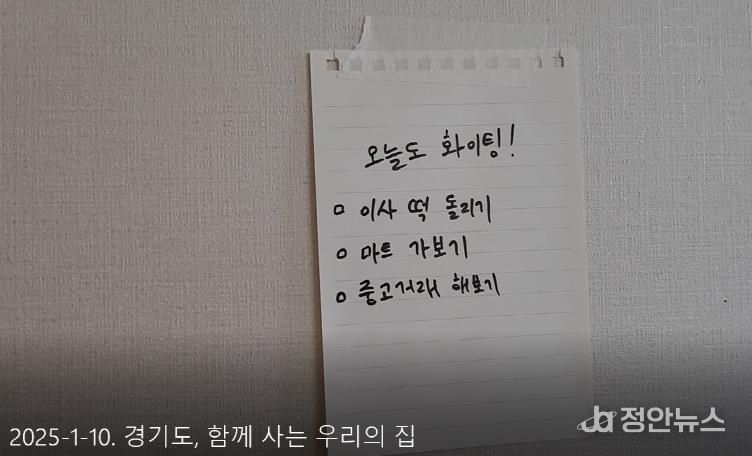 오늘도 화이팅!
이사 떡 돌리기
마트 가보기
중고거래 해보기
2025-1-10. 경기도, 함께 사는 우리의 집
정안뉴스